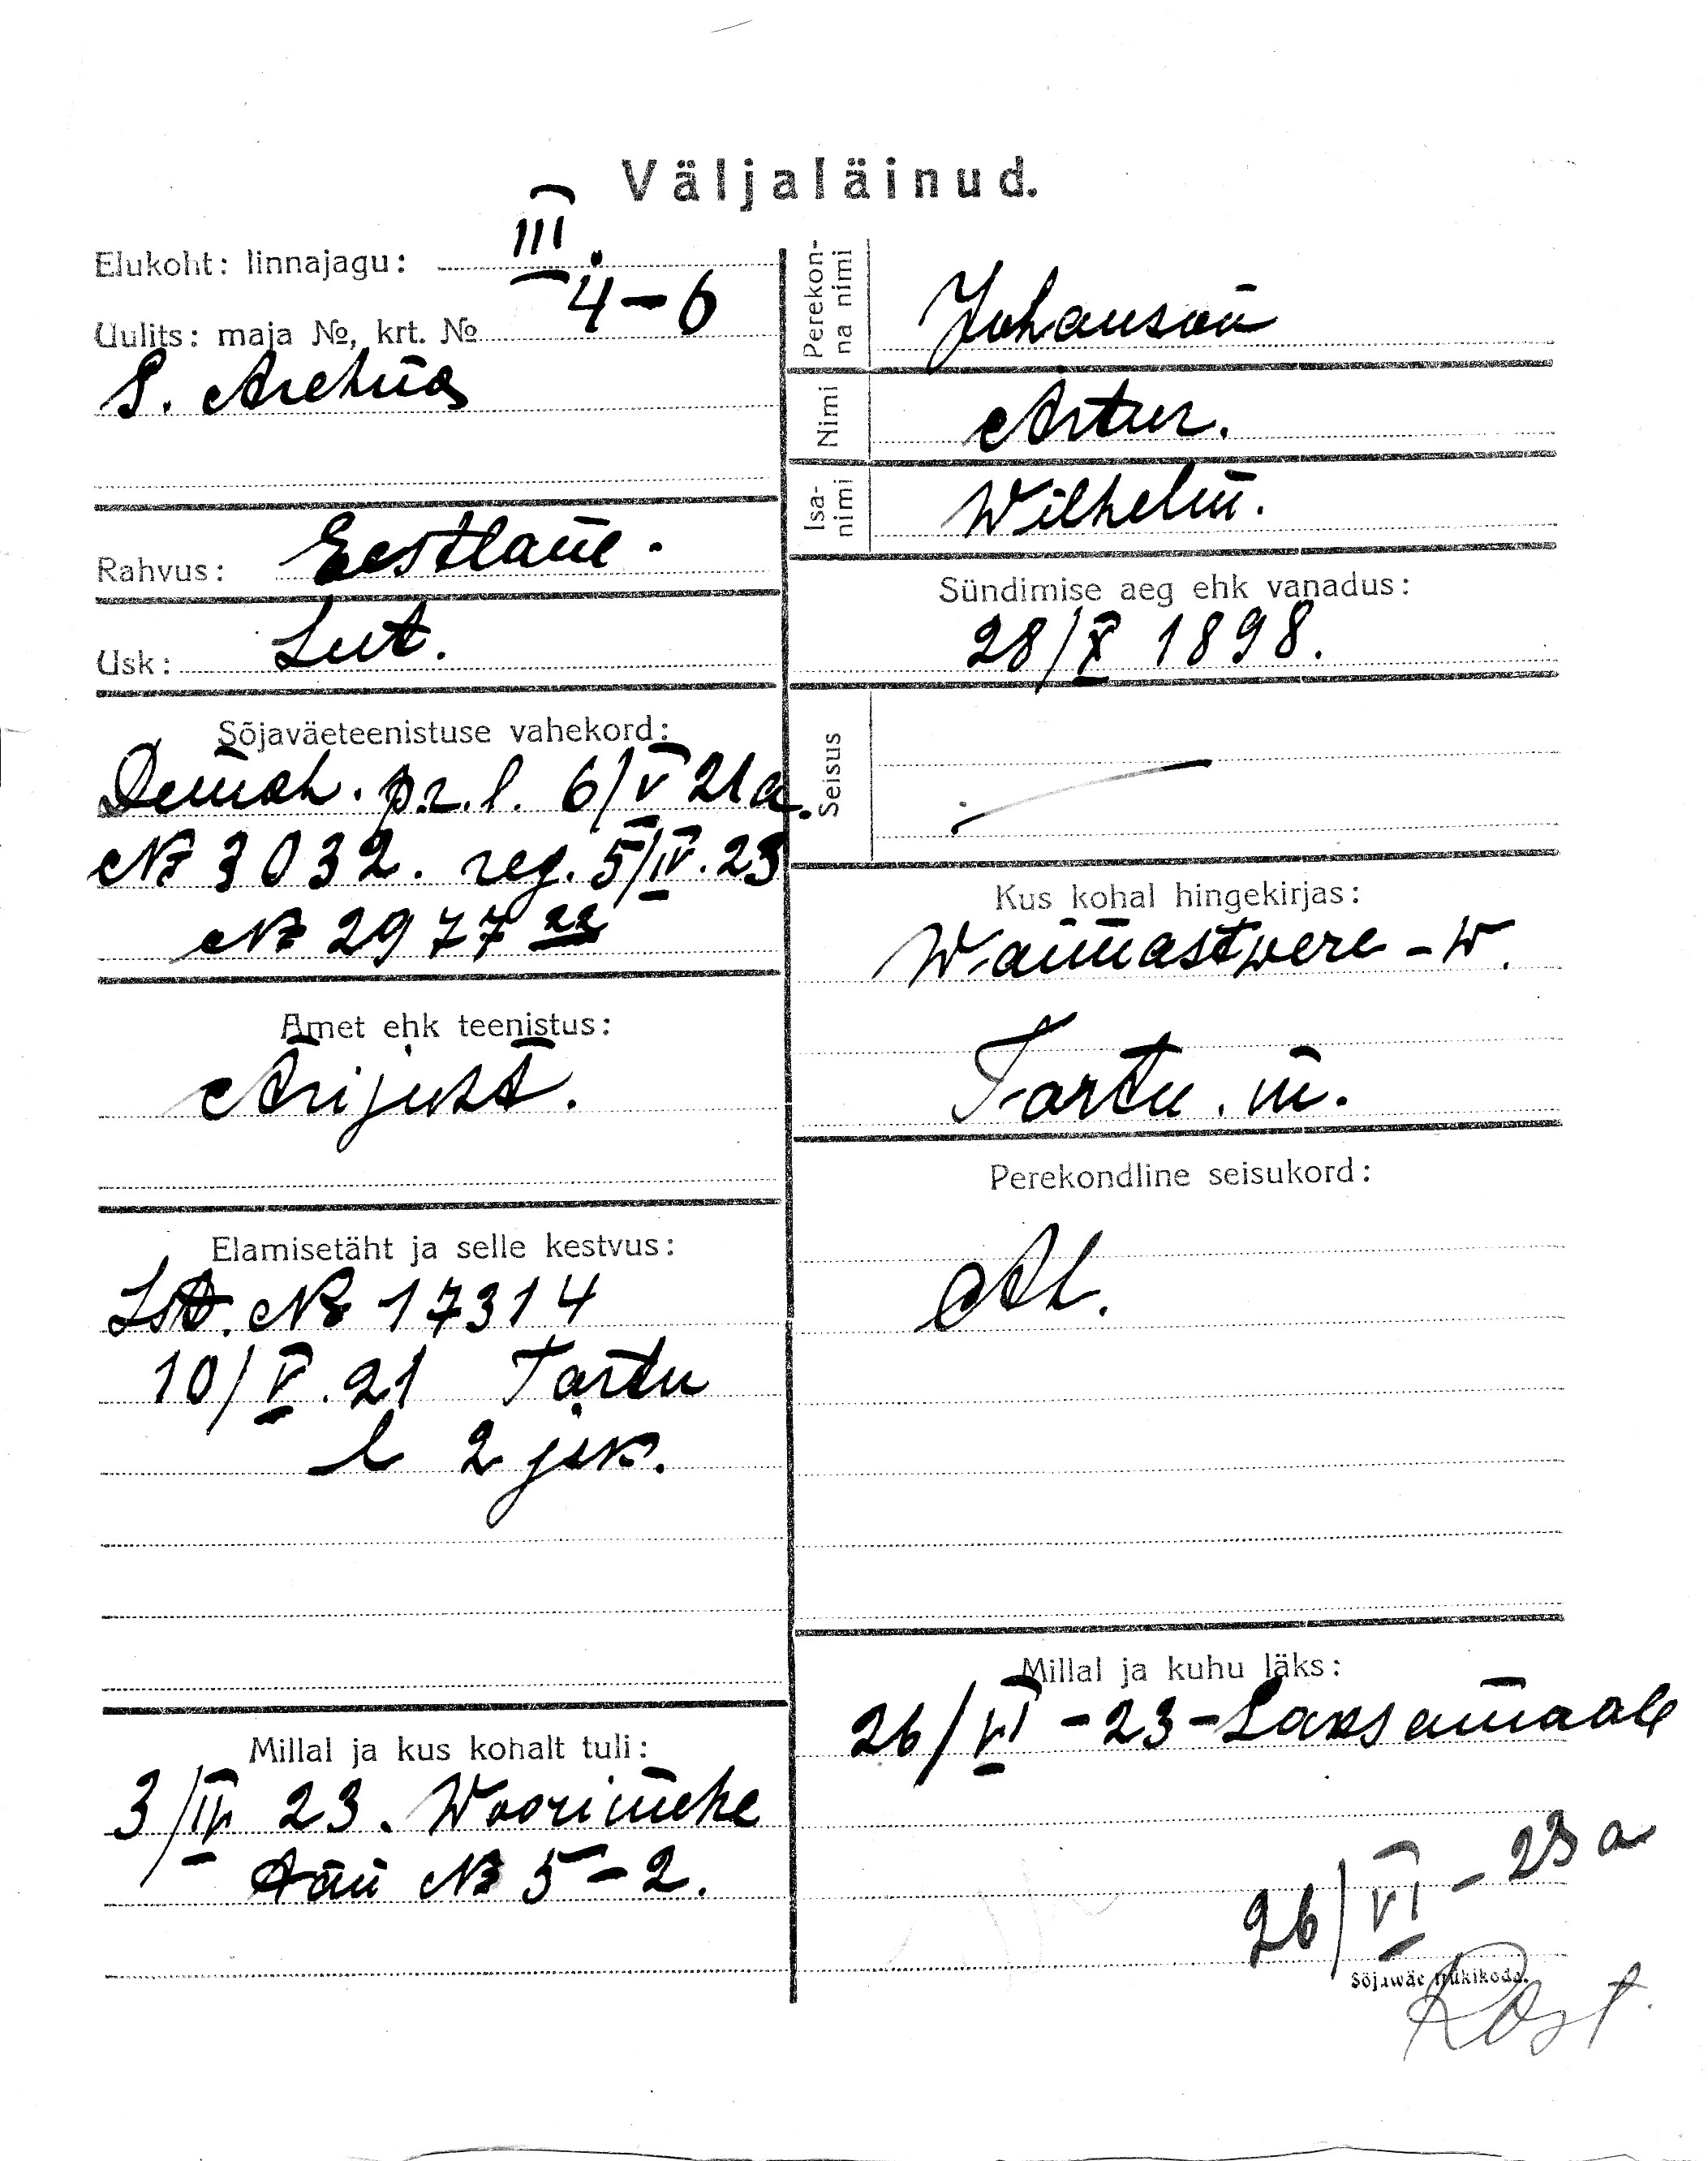 Väljaläinud.
Elukoht: linnajagu: III.
Uulits: maja №, krt. № 4-6
Rahvus: Eestlane.
Usk: Lut.
Sõjaväeteenistuse vahekord:
Demob. p.r.l. 6/V 21 a.
№ 3032. reg. 5/IV. 23
№ 2977 22
Amet ehk teenistus:
Ärijuht.
Elamisetäht ja selle kestvus:
Ist. № 17314
10/V. 21 Tartu
l 2 jsk.
Millal ja kus kohalt tuli:
3/IV 23. Woorimehe
tän № 5-2.
Perekonna nimi Johanson
Nimi Artur.
Isanimi Wilhelm.
Sündimise aeg ehk vanadus:
28/X 1898.
Seisus
Kus kohal hingekirjas:
Waimastwere-w.
Tartu. m.
Perekondline seisukord:
Ab.
Millal ja kuhu läks:
26/VI-23-Saksamaale
26/VI-23 a
Sõjawäe trükikoda.